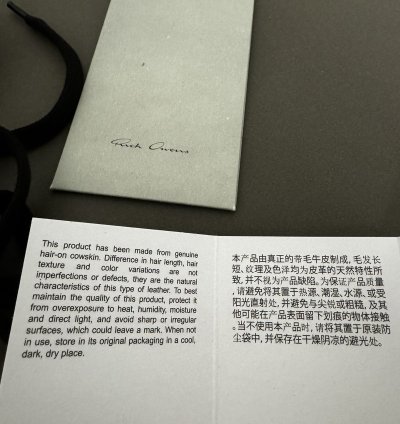 Rick Owens
This product has been made from genuine
hair-on cowskin. Difference in hair length, hair
texture and color variations are not
imperfections or defects, they are the natural
characteristics of this type of leather. To best
maintain the quality of this product, protect it
from overexposure to heat, humidity, moisture
and direct light, and avoid sharp or irregular
surfaces, which could leave a mark. When not
in use, store in its original packaging in a cool,
dark, dry place.
本产品由真正的带毛牛皮制成, 毛发长
短、纹理及色泽均为皮革的天然特性所
致, 并不视为产品缺陷。为保证产品质量
, 请避免将其置于热源、潮湿、水源、或受
阳光直射处, 并避免与尖锐或粗糙, 及其
他可能在产品表面留下划痕的物体接触
。当不使用本产品时, 请将其置于原装防
尘袋中, 并保存在干燥阴凉的避光处。